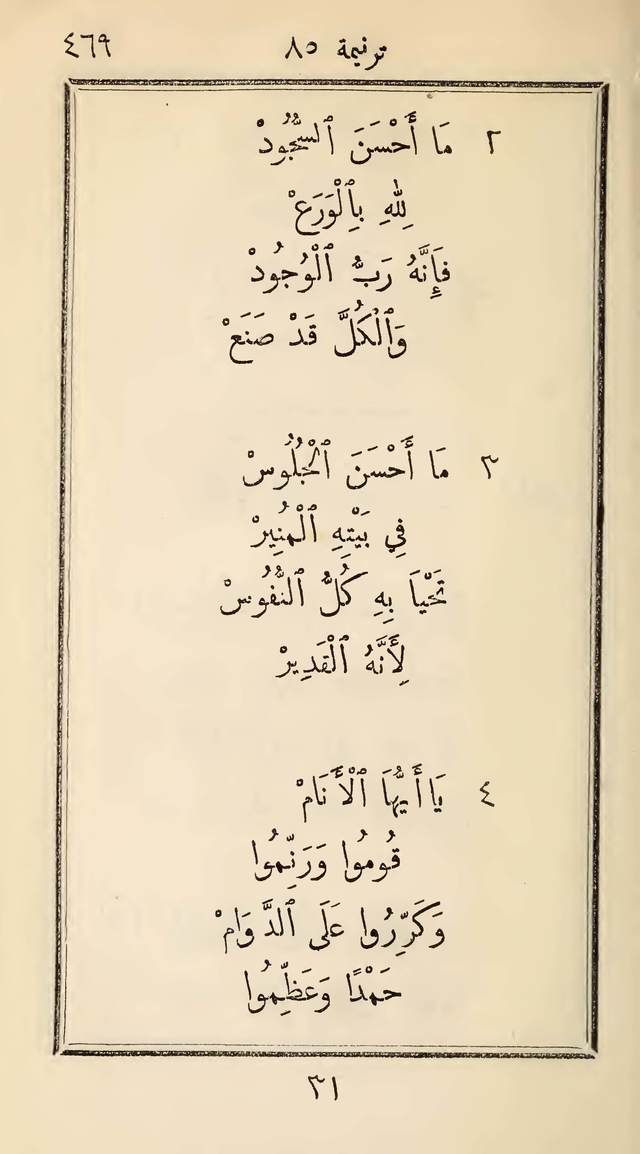 ترنيمة ٨٥ ٤٦٩
٢ مَا أَحْسَنَ ٱلسُّجُودْ
لِلهِ بِٱلْوَرَعْ
فَإِنَّهُ رَبُّ ٱلْوُجُودْ
وَٱلْكُلَّ قَدْ صَنَعْ
٣ مَا أَحْسَنَ ٱلْجُلُوسْ
فِي بَيْتِهِ ٱلْمُنِيرْ
تَحْيَا بِهِ كُلُّ ٱلنُّفُوسْ
لِأَنَّهُ ٱلْقَدِيرْ
٤ يَا أَيُّهَا ٱلْأَنَامْ
قُومُوا وَرَنِّمُوا
وَكَرِّرُوا عَلَى ٱلدَّوَامْ
حَمْدًا وَعَظِّمُوا
٣١